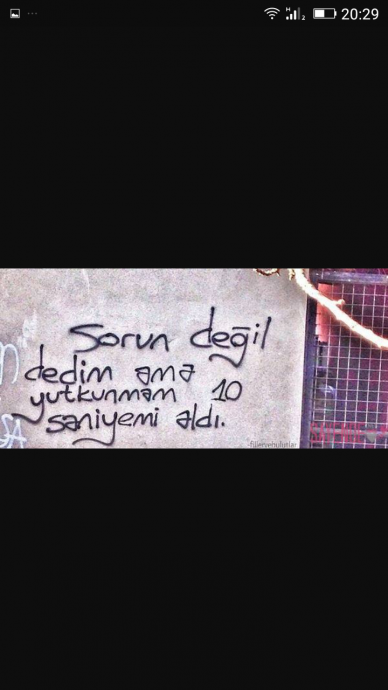 20:29
Sorun değil
dedim ama
yutkunmam 10
saniyemi aldı.
-fillervebulutlar